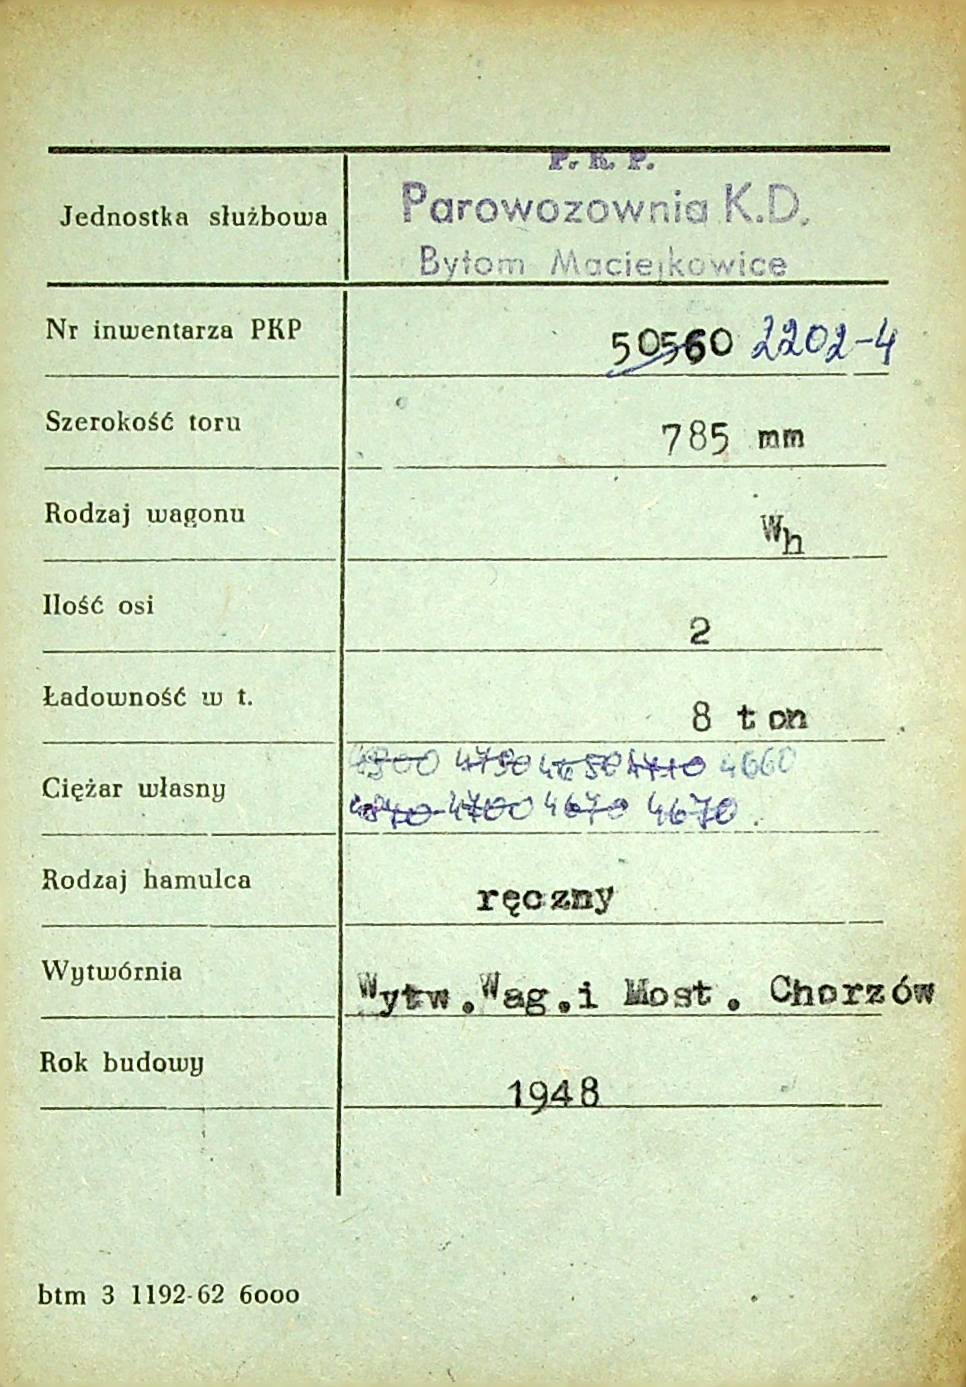 P. K. P.
Jednostka służbowa Parowozownia K.D.
Bytom Maciejkowice
Nr inwentarza PKP 50560 2202-4
Szerokość toru 785 mm
Rodzaj wagonu Wh
Ilość osi 2
Ładowność w t. 8 ton
4750 4710 4660
Ciężar własny
4700 4670 4670
Rodzaj hamulca ręczny
Wytwórnia Wytw.Wag.i Most. Chorzów
Rok budowy 1948
btm 3 1192-62 6000